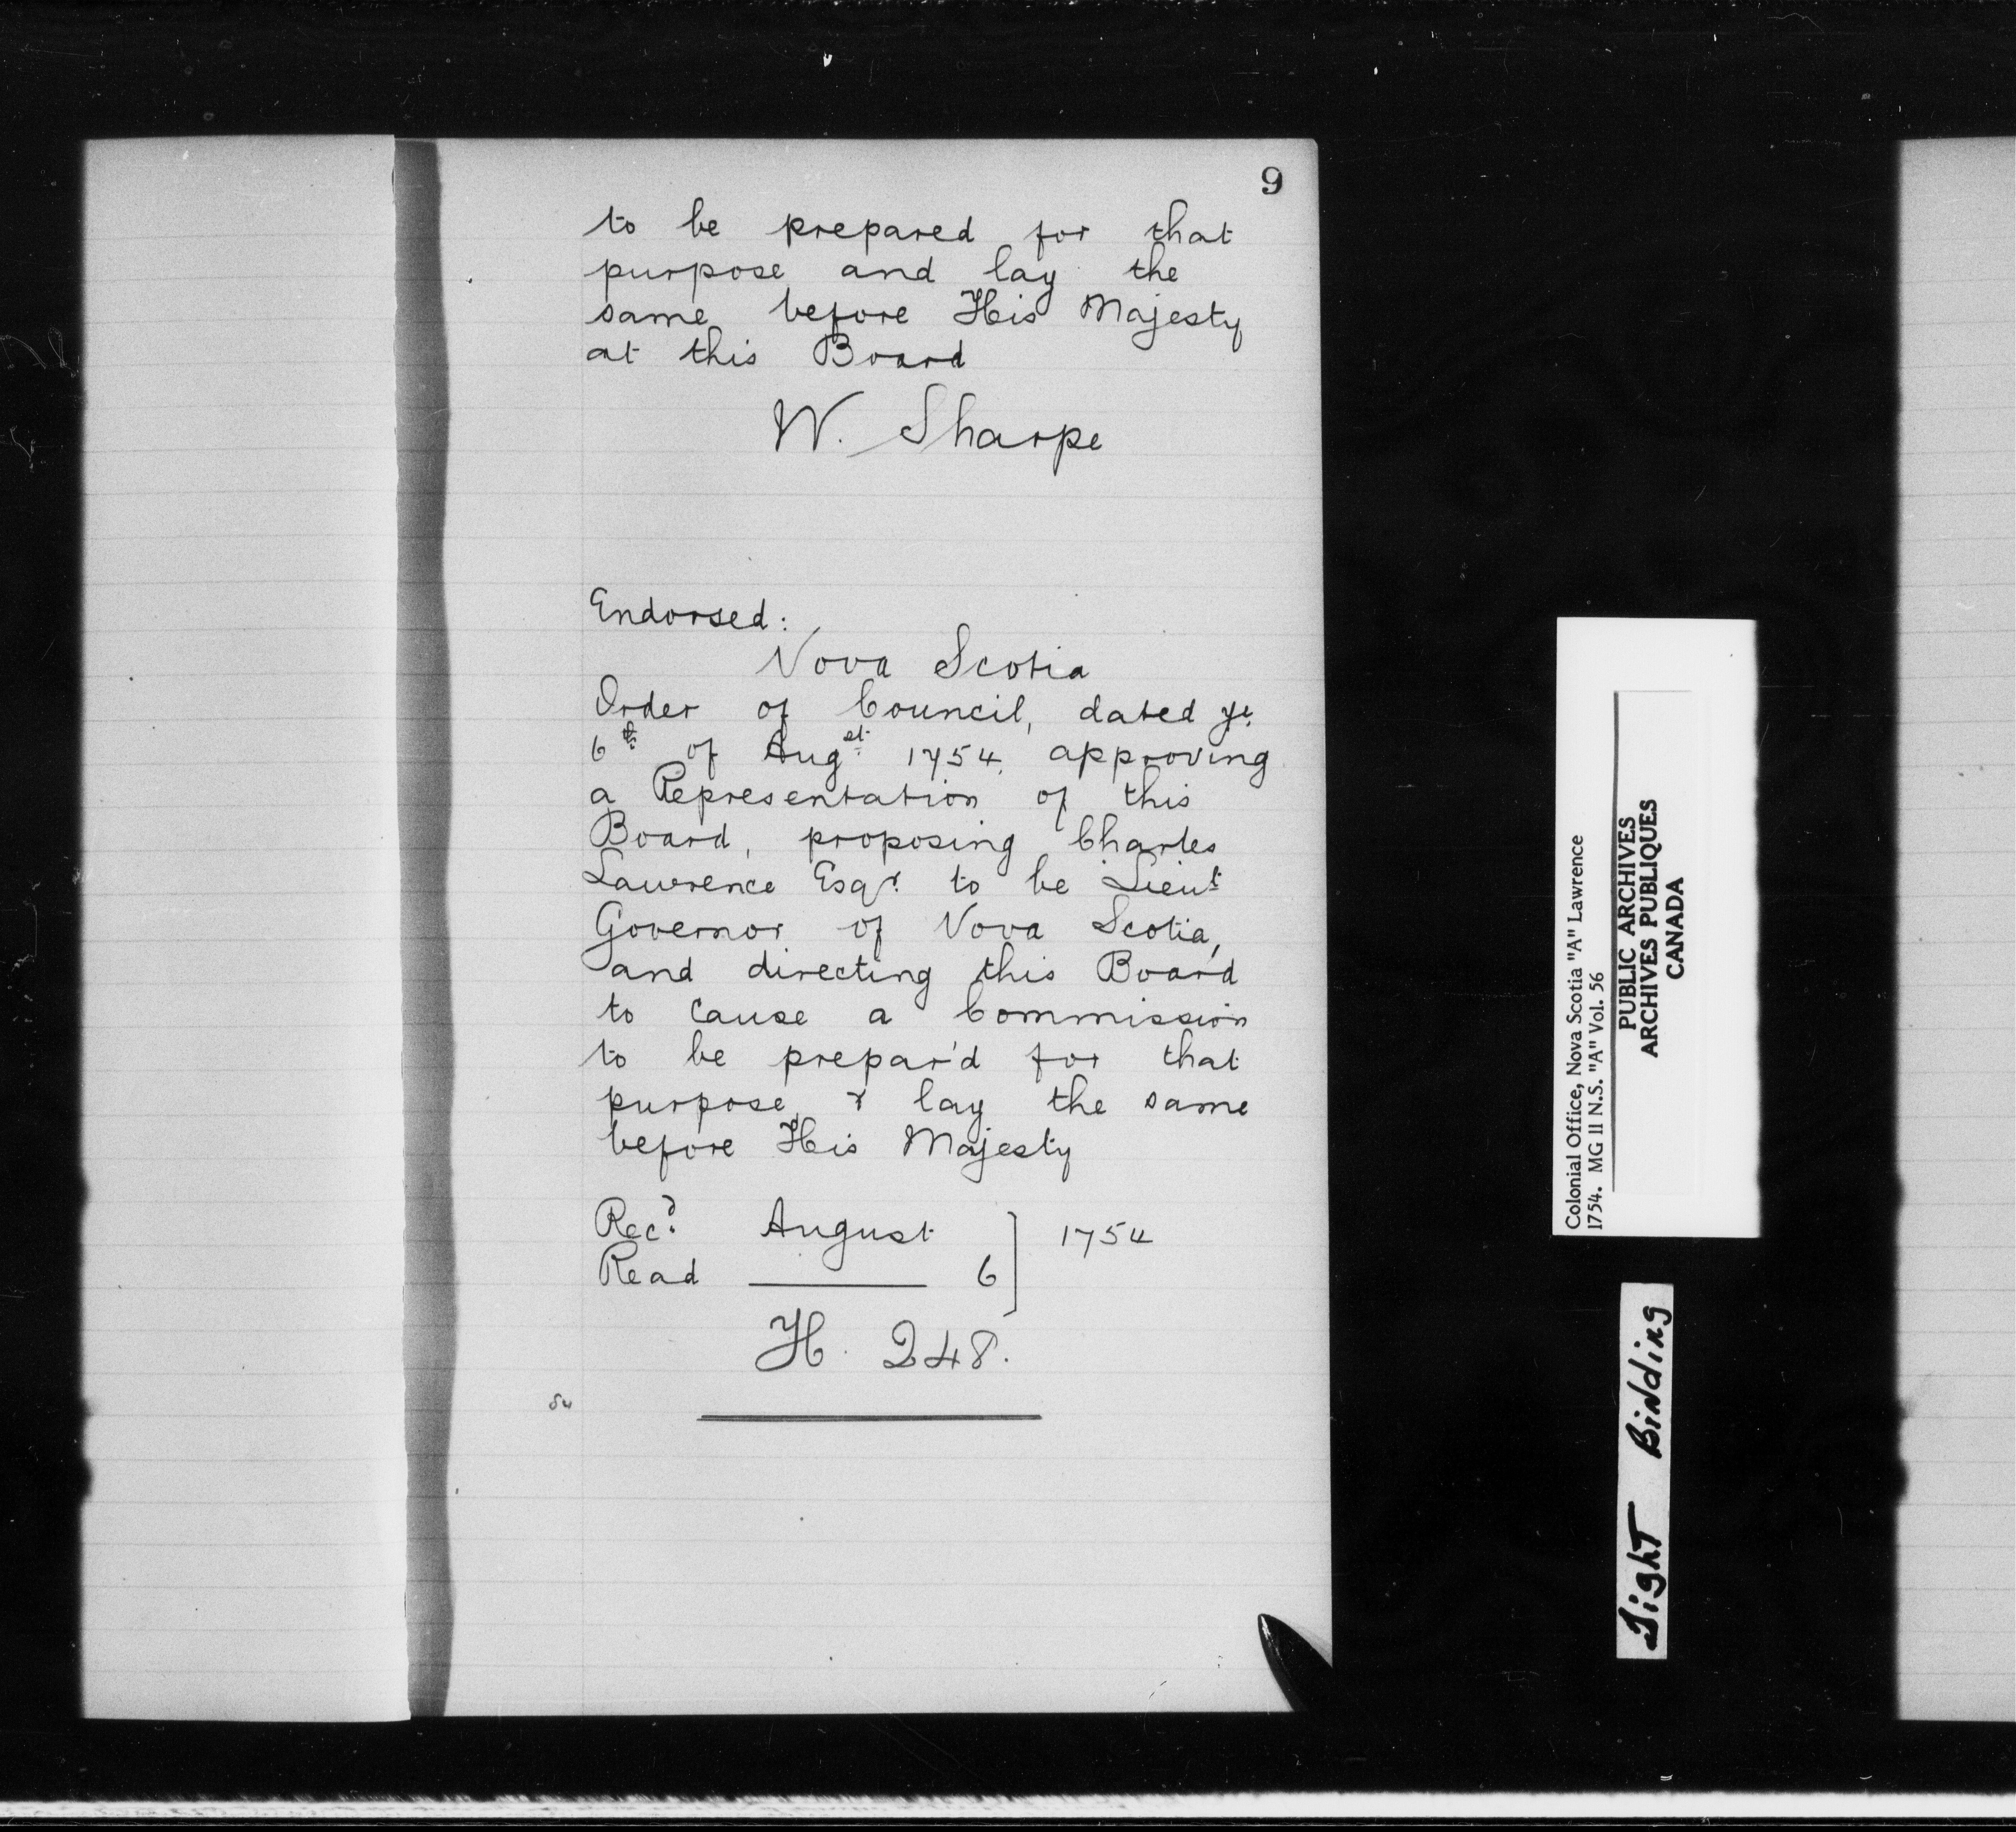 9
to be prepared for that
purpose and lay the
same before His Majesty
at this Board
W. Sharpe
Endorsed:
Nova Scotia
Order of Council, dated ye
6th of Augst 1754, approving
a Representation of this
Board, proposing Charles
Lawrence Esqr. to be Lieut
Governor of Nova Scotia,
and directing this Board
to cause a Commission
to be prepar'd for that
purpose, & lay the same
before His Majesty
Recd. August ] 1754
Read —— 6
H. 248.
Colonial Office, Nova Scotia "A" Lawrence
1754. MG 11 N.S. "A" Vol. 56
PUBLIC ARCHIVES
ARCHIVES PUBLIQUES
CANADA
Tight Binding